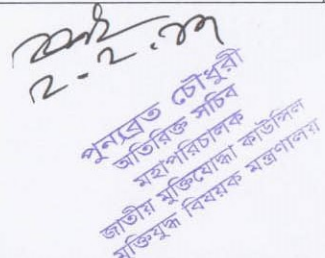 পুন্যব্রত চৌধুরী
অতিরিক্ত সচিব
মহাপরিচালক
জাতীয় মুক্তিযোদ্ধা কাউন্সিল
মুক্তিযুদ্ধ বিষয়ক মন্ত্রণালয়